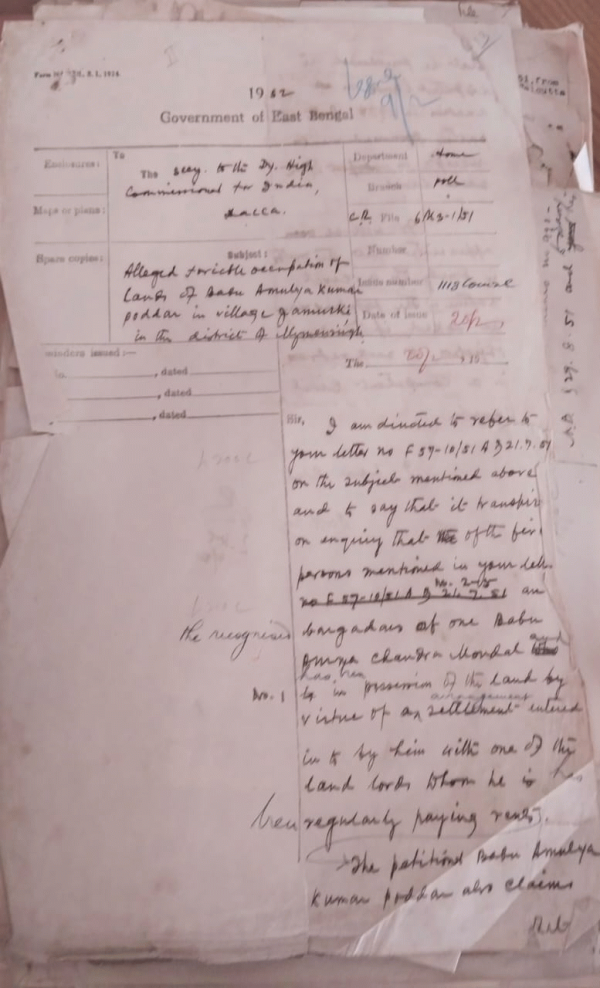 1952
Government of East Bengal
Enclosures:
To
The Secy. to the Dy. High
Commissioner for India,
Dacca.
Department Home
Branch Poll
Maps or plans:
C.R. File 6M3-1/51
Spare copies:
Subject:
Alleged forcible occupation of
lands of Babu Amulya Kumar
Poddar in village Jamurki
in the district of Mymensingh
Number
Issue number
Date of issue 20/2
The 20/2, 19
minders issued:—
, dated
, dated
, dated
Sir,
I am directed to refer to
your letter no F 57-10/51 A D 21.7.51
on the subject mentioned above
and to say that it transpir
on enquiry that of the
persons mentioned in your
No. 2-15
no F 57-10/51 A D 21.7.51
the recognised
bargadars of one Babu
Amulya Chandra Mondal and
has been
No. 1
is in possession of the land by
arrangement
virtue of an settlement entered
in to by him with one of the
land lords whom he is has
been regularly paying rents.
The petitioner Babu Amulya
Kumar Poddar also claims
29.8.51 and